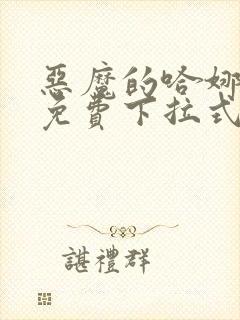 惡魔的哈娜
免費下拉式
諶禮群